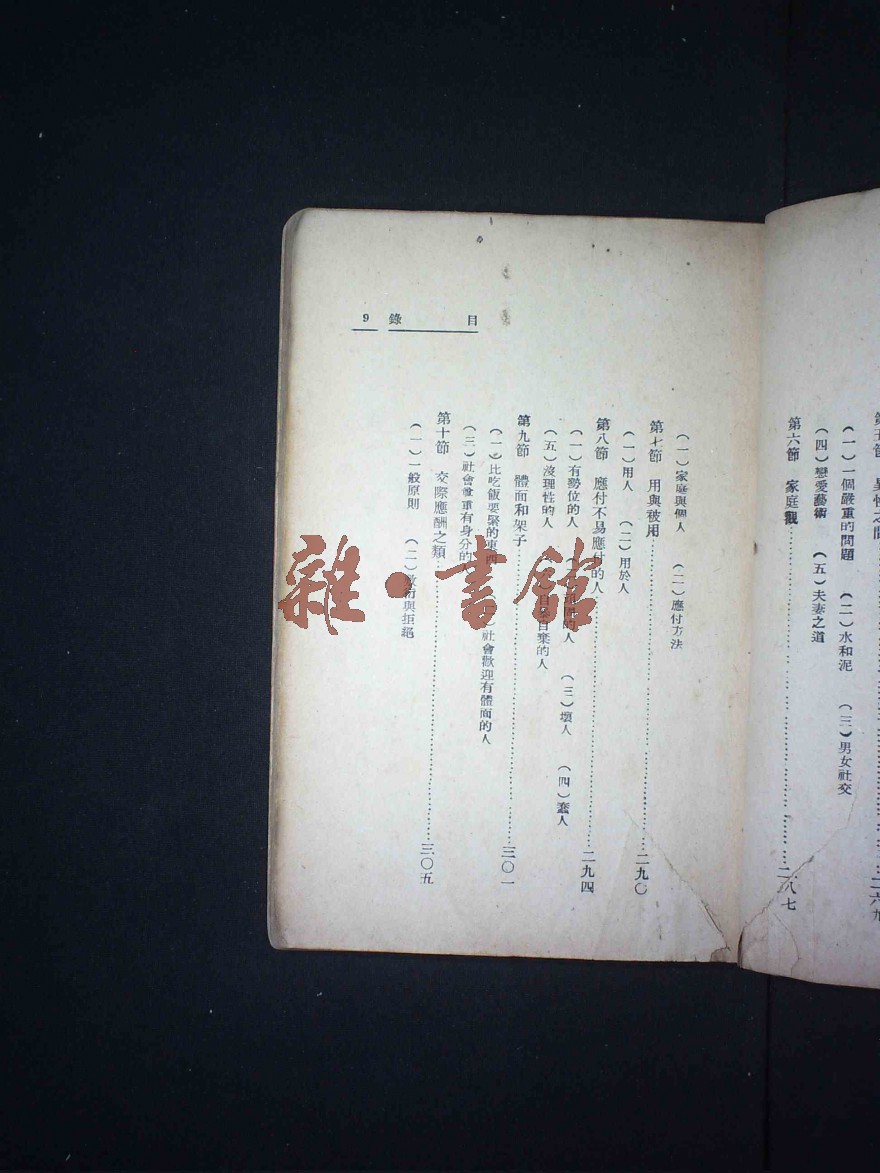 第五節
(一)一個嚴重的問題 (二)水和泥 (三)男女社交
(四)戀愛藝術 (五)夫妻之道
第六節 家庭觀……二八七
目錄 9
(一)家庭與個人 (二)應付方法
第七節 用與被用……二九〇
(一)用人 (二)用於人
第八節 應付不易應付的人……二九四
(一)有勢位的人 的人 (三)壞人 (四)蠢人
(五)沒理性的人 自棄的人
第九節 體面和架子……三〇一
(一)比吃飯要緊的東西 社會歡迎有體面的人
(三)社會尊重有身分的
第十節 交際應酬之類……三〇五
(一)一般原則 (二)敷衍與拒絕
雜·書館